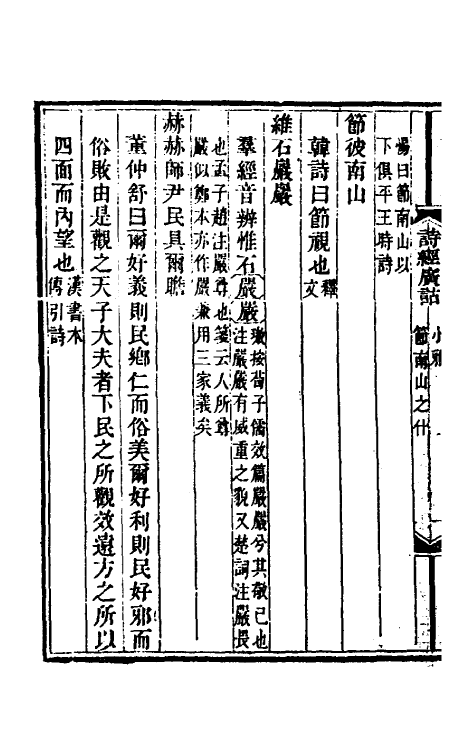 詩經廣詁
小雅
節南山之什
易曰節南山以
下俱平王時詩
節彼南山
韓詩曰節視也
釋
文
維石巖巖
羣經音辨惟石嚴嚴
璈按荀子儒效篇嚴嚴兮其敬己也
注嚴嚴有威重之貌又楚詞注嚴畏
也孟子趙注嚴尊也箋云人所尊
嚴似鄭本亦作嚴兼用三家義矣
赫赫師尹民具爾瞻
董仲舒曰爾好義則民鄉仁而俗美爾好利則民好邪而
俗敗由是觀之天子大夫者下民之所觀效遠方之所以
四面而內望也
漢書本
傳引詩